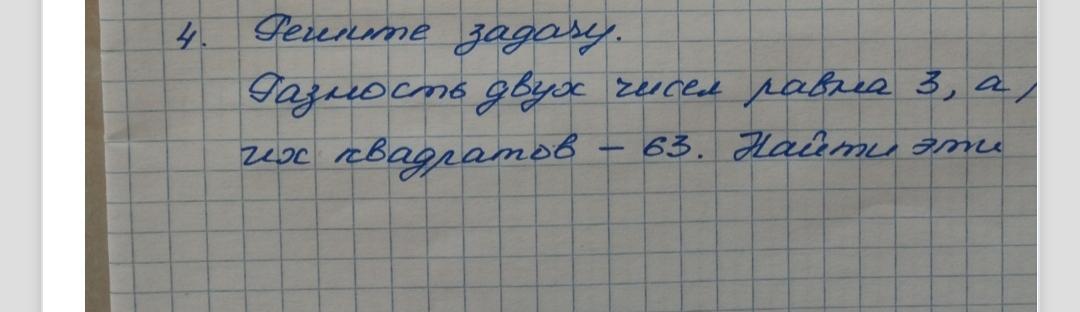 4. Решите задачу.
Разность двух чисел равна 3, а
их квадратов - 63. Найти эти